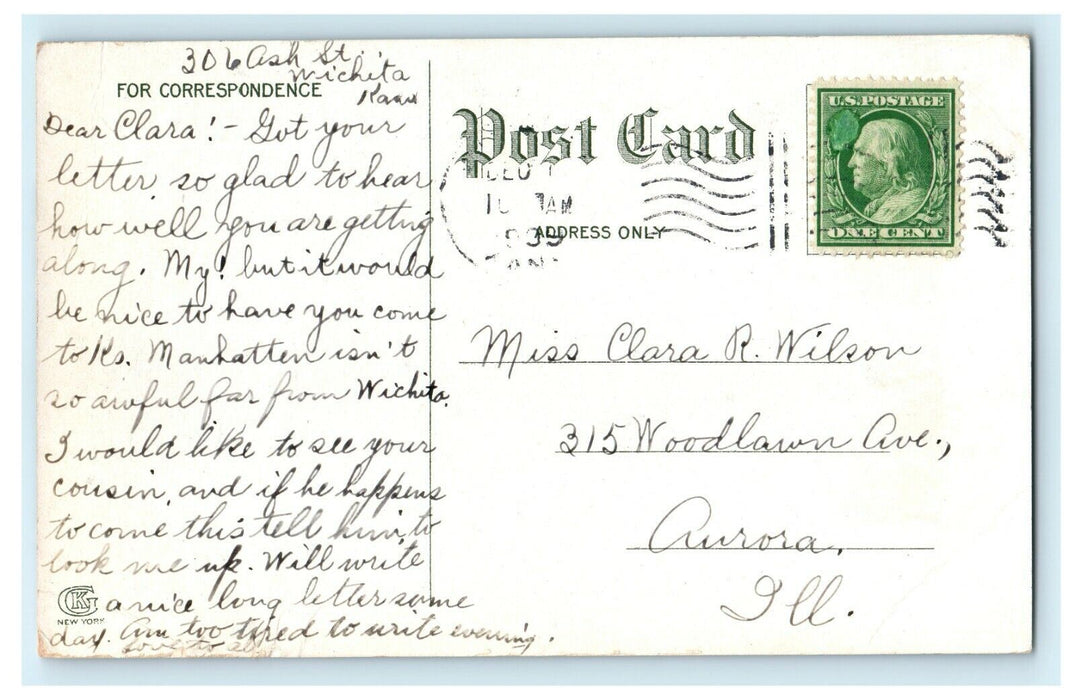 306 Ash St.
Wichita
Kans
FOR CORRESPONDENCE
Dear Clara! - Got your
letter so glad to hear
how well you are getting
along. My! but it would
be nice to have you come
to Ks. Manhatten isn't
so awful far from Wichita.
I would like to see your
cousin, and if he happens
to come this tell him to
look me up. Will write
a nice long letter some
day. Am too tired to write evening.
Love to all
GK
NEW YORK
Post Card
10 AM
ADDRESS ONLY
U.S. POSTAGE
ONE CENT
Miss Clara R. Wilson
315 Woodlawn Ave.,
Aurora,
Ill.